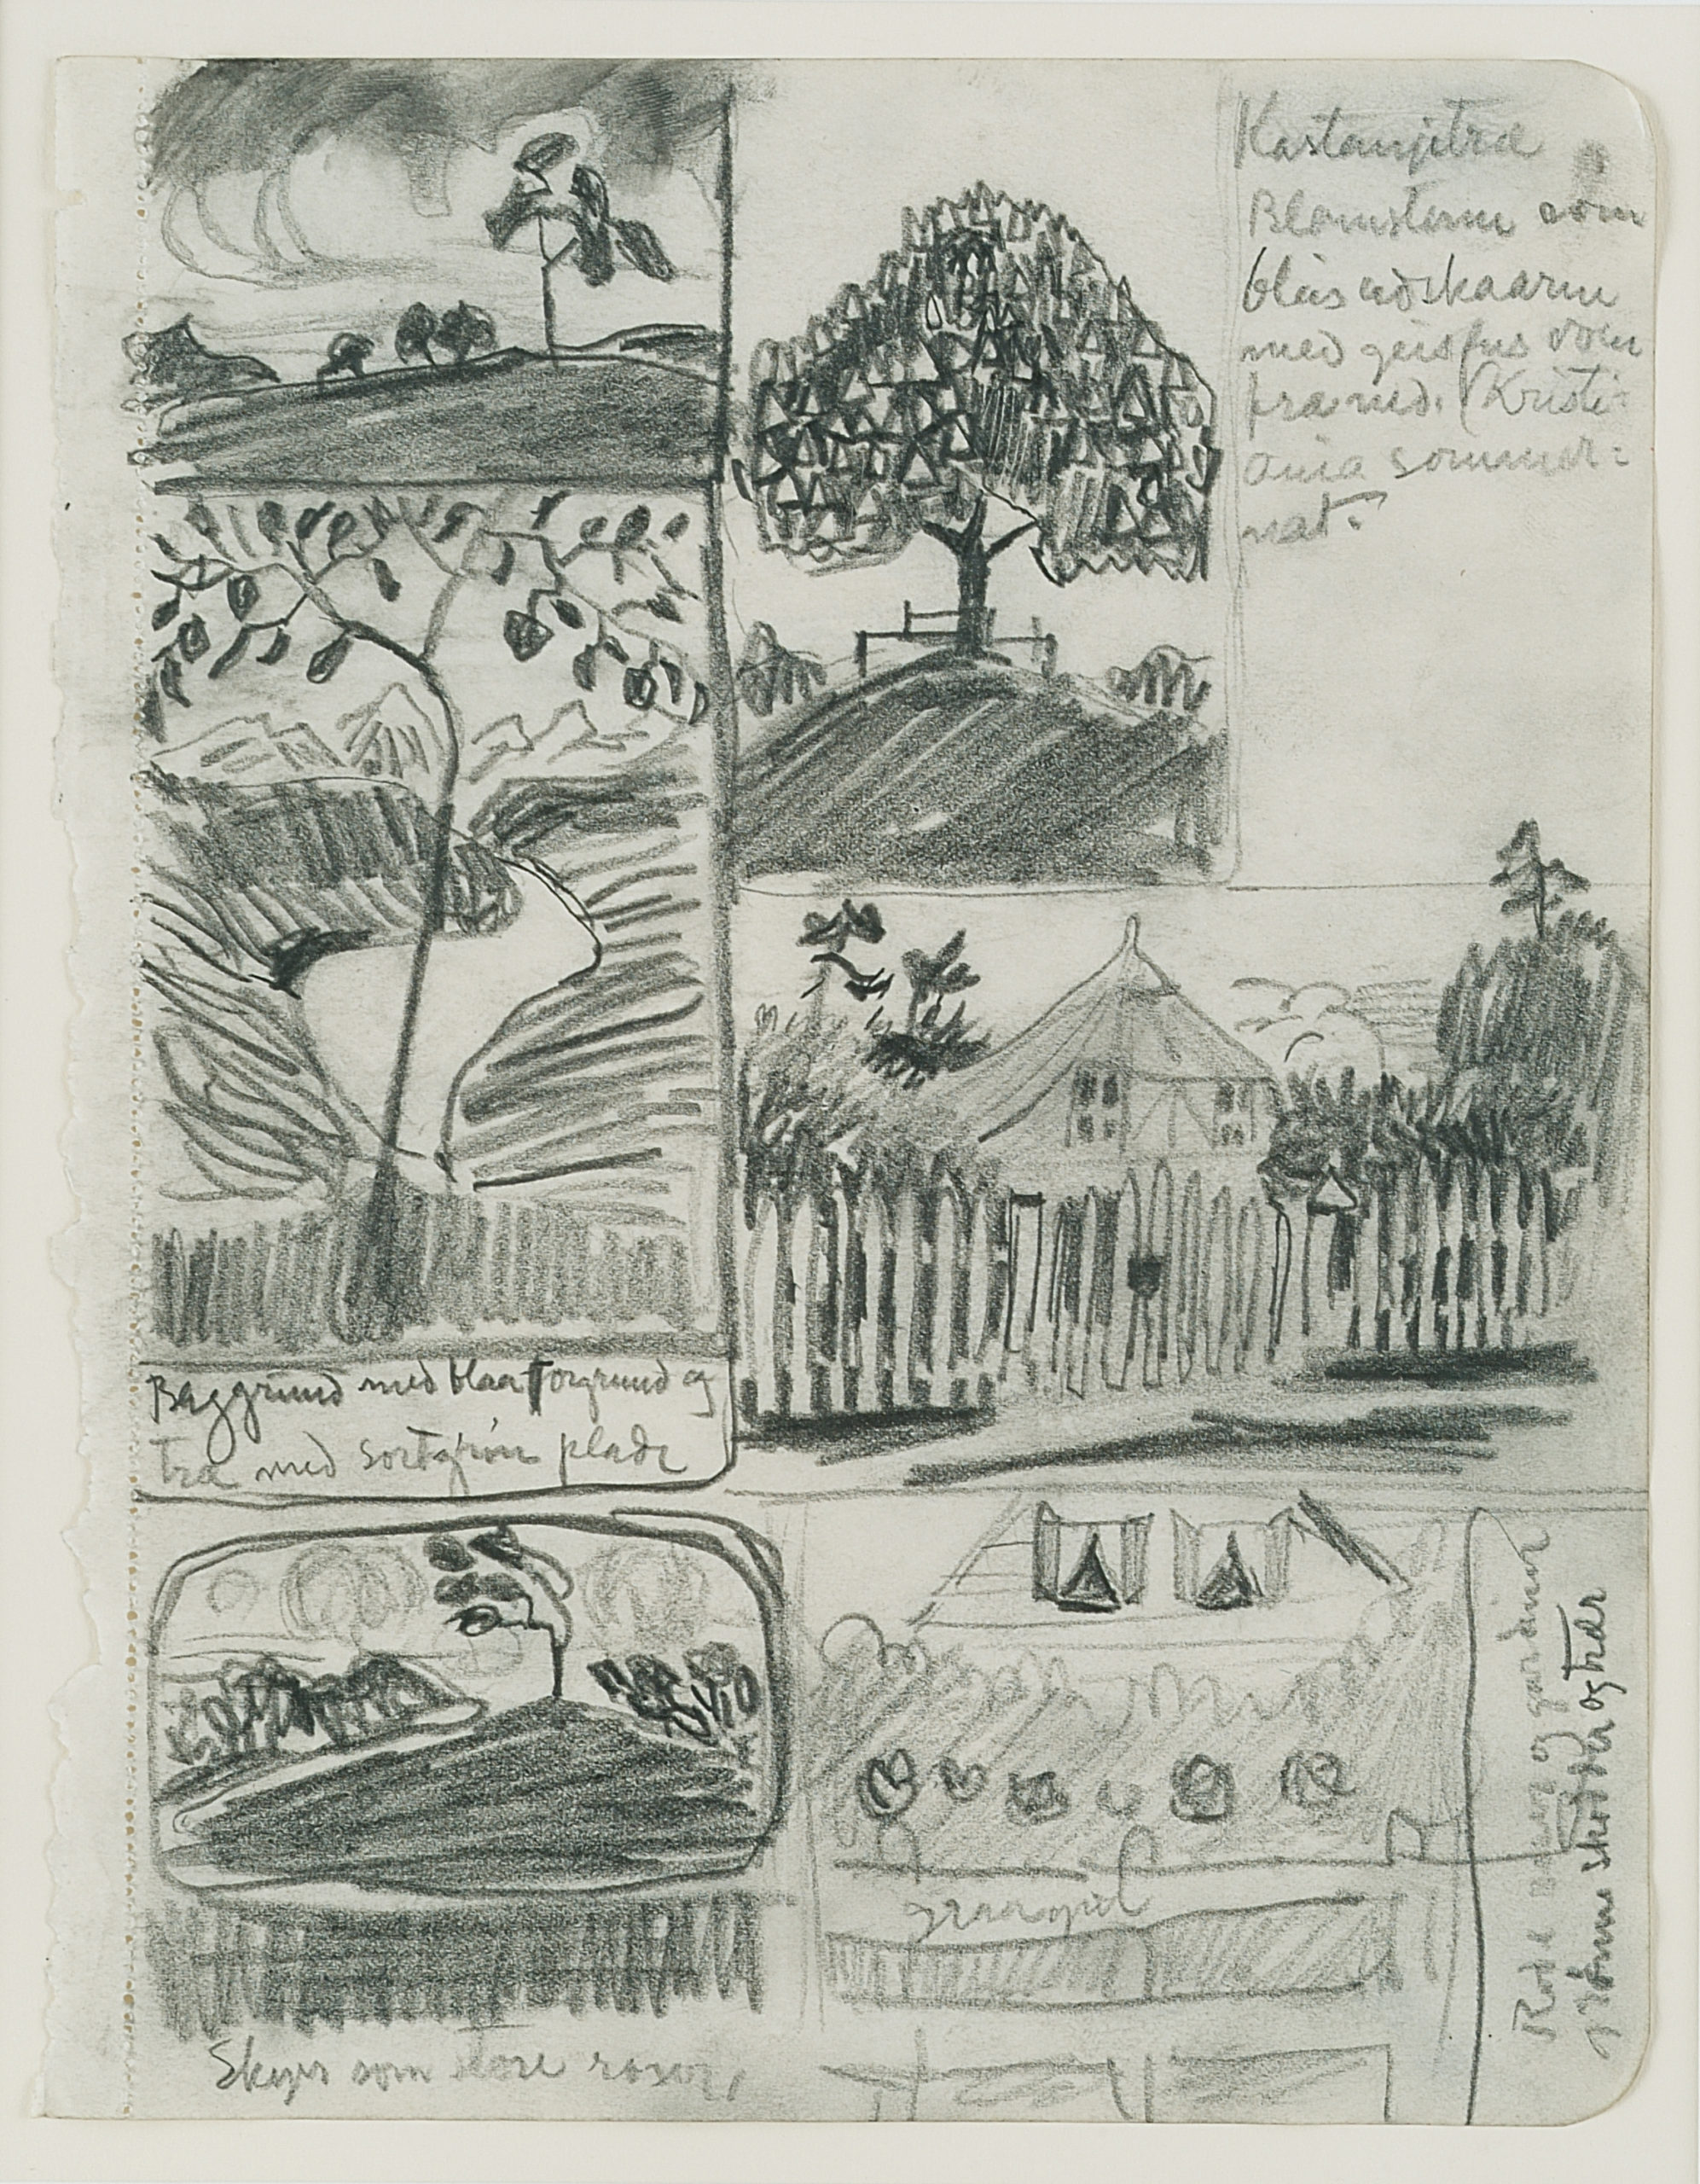 Kastanjetræ
Blomsterne som
udskaarne
med
fra ned. (Kristi-
ania sommer=
nat.
Baggrund med blaa forgrund og
træ med sortgrøn plade
Skyer som store roser,
graaspil
Røde og gardiner
grønne skodder og træer